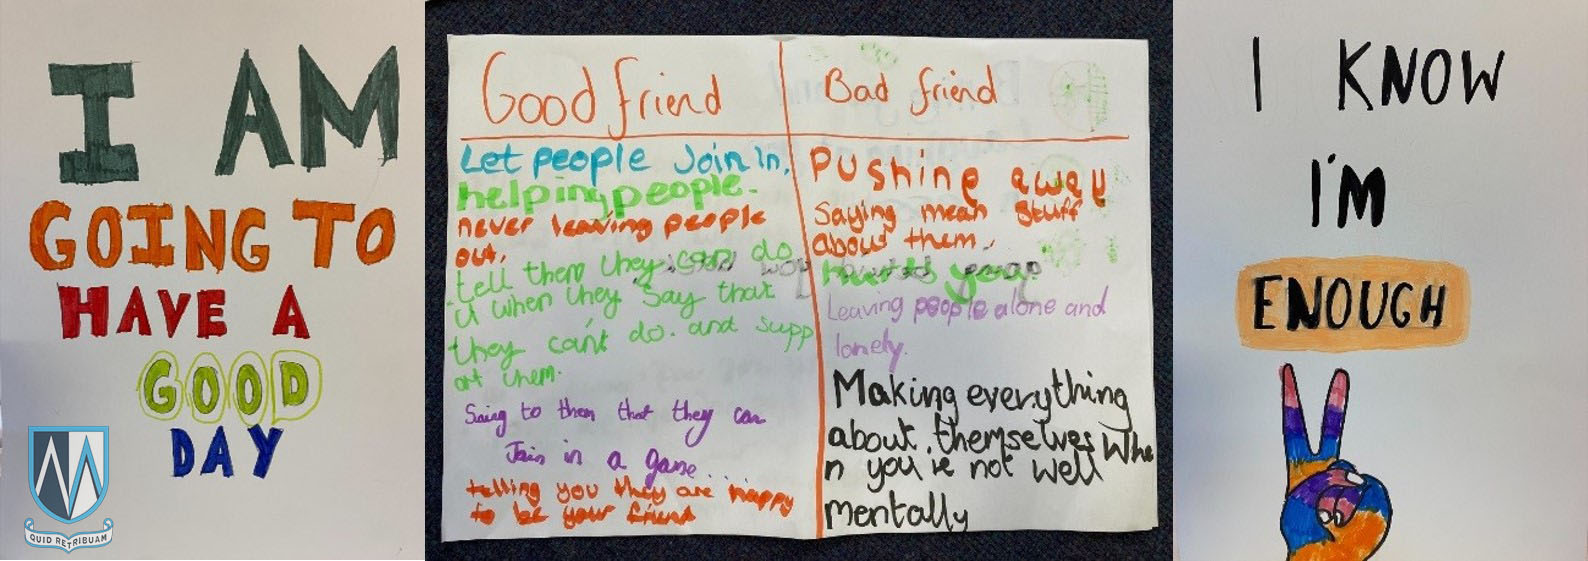 I AM
GOING TO
HAVE A
GOOD
DAY
QUID RETRIBUAM
Good friend
Let people Join In.
helping people.
never leaving people
out.
tell them they can do
it when they say that
they can't do. and supp
ort them.
Saing to them that they can
Join in a game...
telling you they are happy
to be your friend
Bad friend
Pushing away
Saying mean stuff
about them.
Leaving people alone and
lonely.
Making everything
about themselves Whe
n you're not well
mentally
I KNOW
I'M
ENOUGH